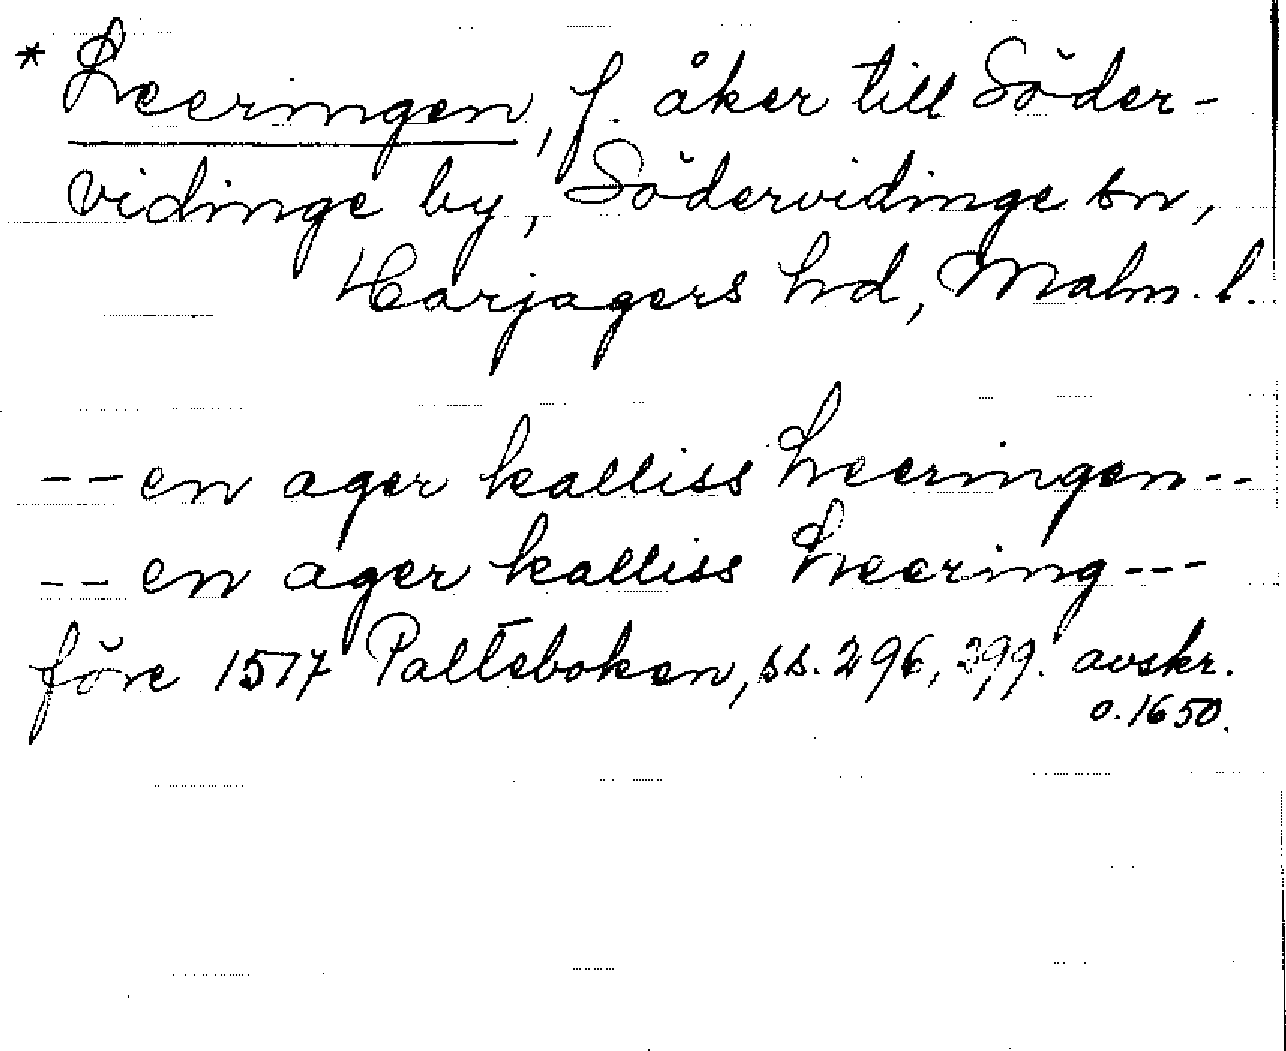 * Heeringen, f. åker till Söder-
vidinge by, Södervidinge sn,
Harjagers hd, Malm. l.
-- en ager kalliss heeringen --
-- en ager kalliss heering ---
före 1517 Palteboken, ss. 296, 399. avskr.
o. 1650.